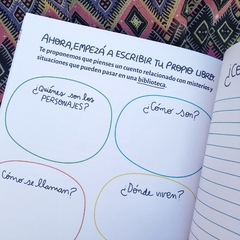 AHORA, EMPEZÁ A ESCRIBIR TU PROPIO LIBRO.
Te proponemos que pienses un cuento relacionado con misterios y
situaciones que pueden pasar en una biblioteca.
¿Quiénes son los
PERSONAJES?
¿Cómo son?
¿Cómo se llaman?
¿Dónde viven?